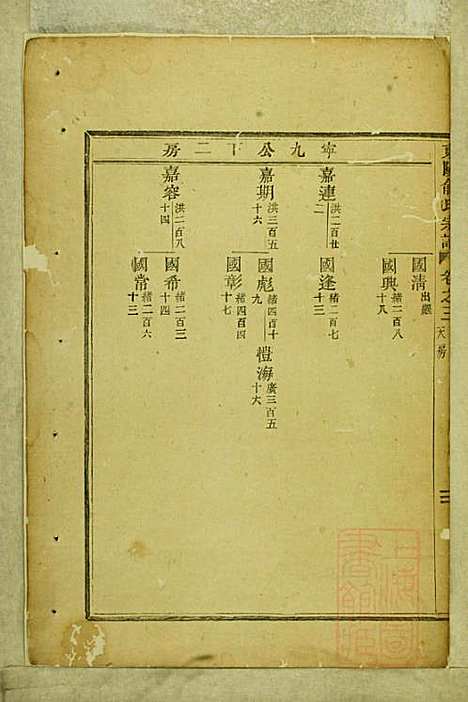 寜九公下二房
國淸 出繼
國興 緒一百八十八
嘉連 洪二百廿二
國逢 緒二百七十三
嘉期 洪三百五十六
國彪 緒四百十九
愷海 廣三百五十六
國彰 緒四百四十七
嘉容 洪二百八十四
國希 緒二百三十四
國常 緒二百六十三
卷之三 天房